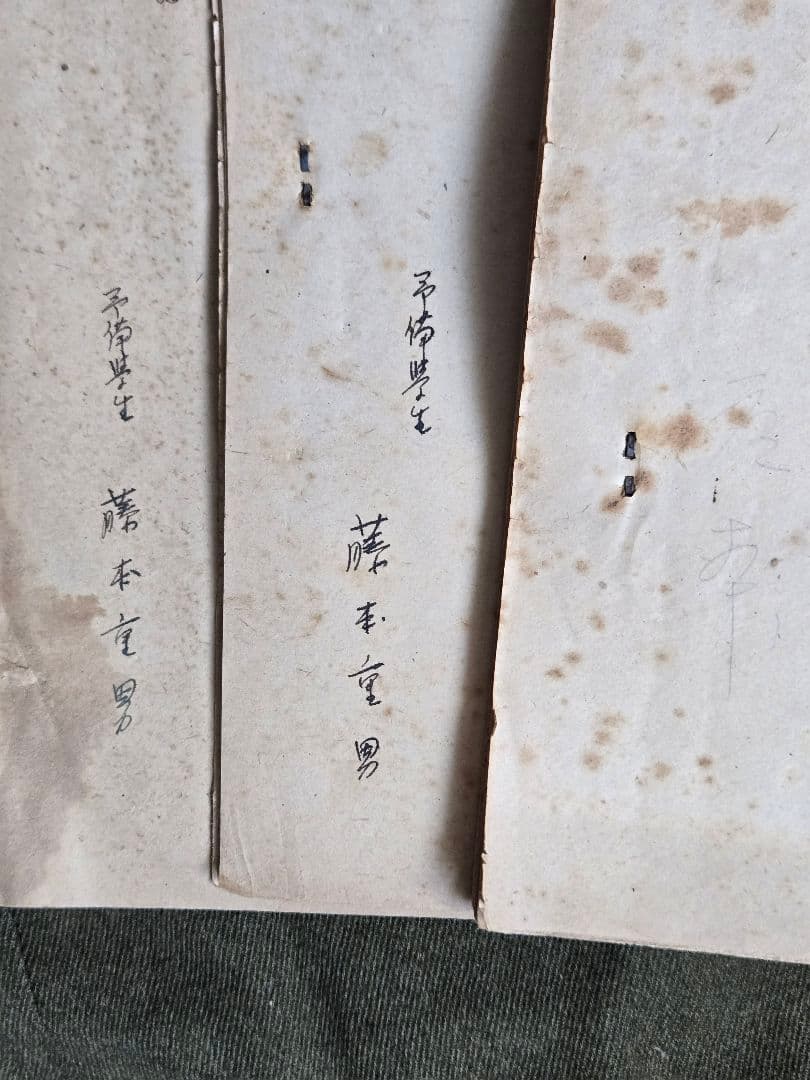 予備學生
藤本重男
予備學生
藤本重男